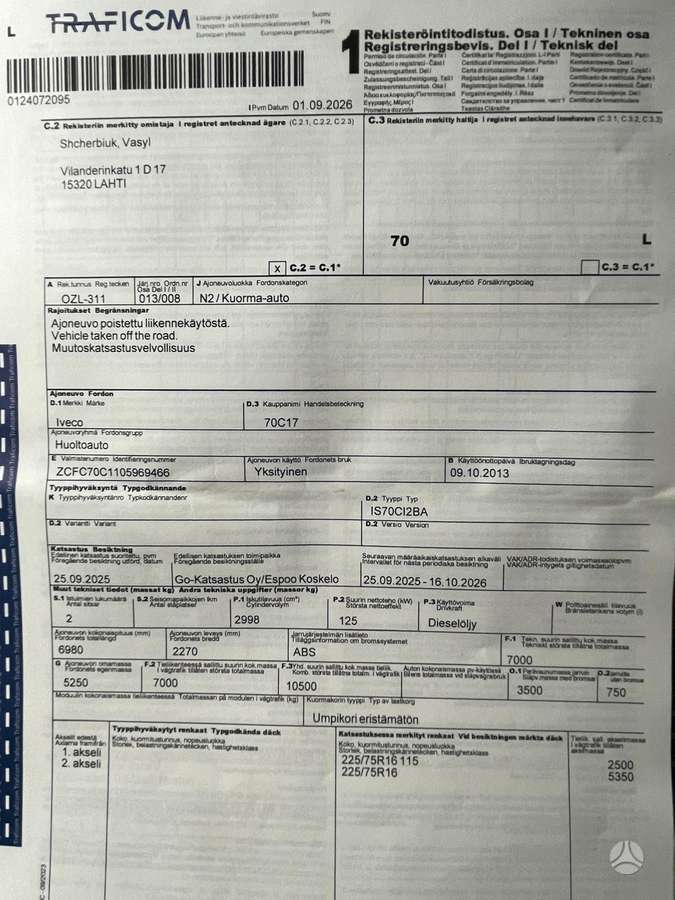 L
TRAFICOM
Liikenne- ja viestintävirasto Suomi
Transport- och kommunikationsverket FIN
Euroopan yhteisö Europeiska gemenskapen
1
Rekisteröintitodistus. Osa I / Tekninen osa
Registreringsbevis. Del I / Teknisk del
0124072095
I Pvm Datum 01.09.2026
C.2 Rekisteriin merkitty omistaja I registret antecknad ägare (C.2.1, C.2.2, C.2.3)
C.3 Rekisteriin merkitty haltija I registret antecknad innehavare (C.3.1, C.3.2, C.3.3)
Shcherbiuk, Vasyl
Vilanderinkatu 1 D 17
15320 LAHTI
70 L
X C.2 = C.1*
C.3 = C.1*
A Rek.tunnus Reg.tecken
Järj.nro Ordn.nr
Osa Del I / II
J Ajoneuvoluokka Fordonskategori
Vakuutusyhtiö Försäkringsbolag
OZL-311 013/008 N2 / Kuorma-auto
Rajoitukset Begränsningar
Ajoneuvo poistettu liikennekäytöstä.
Vehicle taken off the road.
Muutoskatsastusvelvollisuus
Ajoneuvo Fordon
D.1 Merkki Märke
D.3 Kauppanimi Handelsbeteckning
Iveco 70C17
Ajoneuvoryhmä Fordonsgrupp
Huoltoauto
E Valmistenumero Identifieringsnummer
Ajoneuvon käyttö Fordonets bruk
B Käyttöönottopäivä Ibruktagningsdag
ZCFC70C1105969466 Yksityinen 09.10.2013
Tyyppihyväksyntä Typgodkännande
K Tyyppihyväksyntänro Typkodkännandenr
D.2 Tyyppi Typ
IS70CI2BA
D.2 Variantti Variant
D.2 Versio Version
Katsastus Besiktning
Edellinen katsastus suoritettu, pvm
Föregående besiktning utförd, datum
Edellisen katsastuksen toimipaikka
Föregående besiktningsställe
Seuraavan määräaikaiskatsastuksen aikaväli
Intervallet för nästa periodiska besiktning
VAK/ADR-todistuksen voimassaolopvm
VAK/ADR-intygets giltighetsdatum
25.09.2025 Go-Katsastus Oy/Espoo Koskelo 25.09.2025 - 16.10.2026
Muut tekniset tiedot (massat kg) Andra tekniska uppgifter (massor kg)
S.1 Istuimien lukumäärä
Antal sitsar
S.2 Seisomapaikkojen lkm
Antal ståplatser
P.1 Iskutilavuus (cm³)
Cylindervolym
P.2 Suurin nettoteho (kW)
Största nettoeffekt
P.3 Käyttövoima
Drivkraft
W Polttoainesäil. tilavuus
Bränsletankens volym (l)
2 2998 125 Dieselöljy
Ajoneuvon kokonaispituus (mm)
Fordonets totallängd
Ajoneuvon leveys (mm)
Fordonets bredd
Jarrujärjestelmän lisätieto
Tilläggsinformation om bromssystemet
F.1 Tekn. suurin sallittu kok.massa
Tekniskt största tillåtna totalm.
6980 2270 ABS 7000
G Ajoneuvon omamassa
Fordonets egenmassa
F.2 Tieliikenteessä sallittu suurin kok.massa
I vägtrafik största tillåtna totalm.
F.3 Yhd. suurin sallittu kok.massa tieliik.
Komb. största tillåtna totalm. i vägtrafik
Auton kokonaismassa pv-käytössä
Bilens totalmassa vid släpvagnsbruk
O.1 Perävaunumassa jarruin
Släpv.massa med bromsar
O.2 jarruitta
utan bromsar
5250 7000 10500 3500 750
Moduulin kokonaismassa tieliikenteessä Totalmassan på modulen i vägtrafik (kg)
Kuormakorin tyyppi Typ av lastkorg
Umpikori eristämätön
Akselit edestä
Axlarna framifrån
Tyyppihyväksytyt renkaat Typgodkända däck
Koko, kuormitustunnus, nopeusluokka
Storlek, belastningskännetecken, hastighetsklass
Katsastuksessa merkityt renkaat Vid besiktningen märkta däck
Koko, kuormitustunnus, nopeusluokka
Storlek, belastningskännetecken, hastighetsklass
Tieliik. sall. akselimassa
I vägtrafik tillåten
axelmassa
1. akseli 225/75R16 115 2500
2. akseli 225/75R16 5350
C - 09/2023